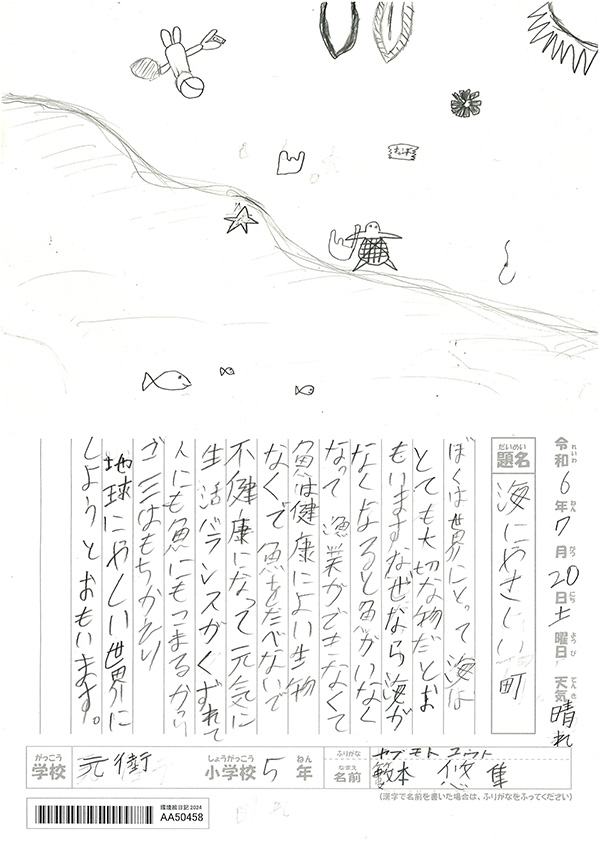 令和6年7月20日土曜日 天気 晴れ
れいわ ねん がつ にち ようび てんき
だいめい
題名 海にやさしい町
ぼくは世界にとって海は
とても大切な物だとお
もいますなぜなら海が
なくなると魚がいなく
なって漁業ができなくて
魚は健康によい生物
なくで魚をたべないで
不健康になって元気に
生活バランスがくずれて
人にも魚にもこまるから
ゴミはもちかえり
地球にやしい世界に
しようとおもいます。
がっこう しょうがっこう ねん ふりがな ヤブモト ユウト
学校 元街 小学校 5年 なまえ 名前 藪本 悠隼
(漢字で名前を書いた場合は、ふりがなをふってください)
環境絵日記2024
AA50458